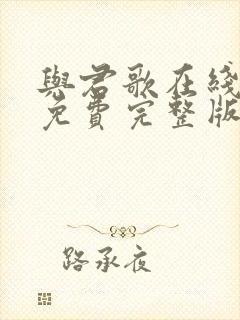 與君歌在綫
免費完整版
路承夜